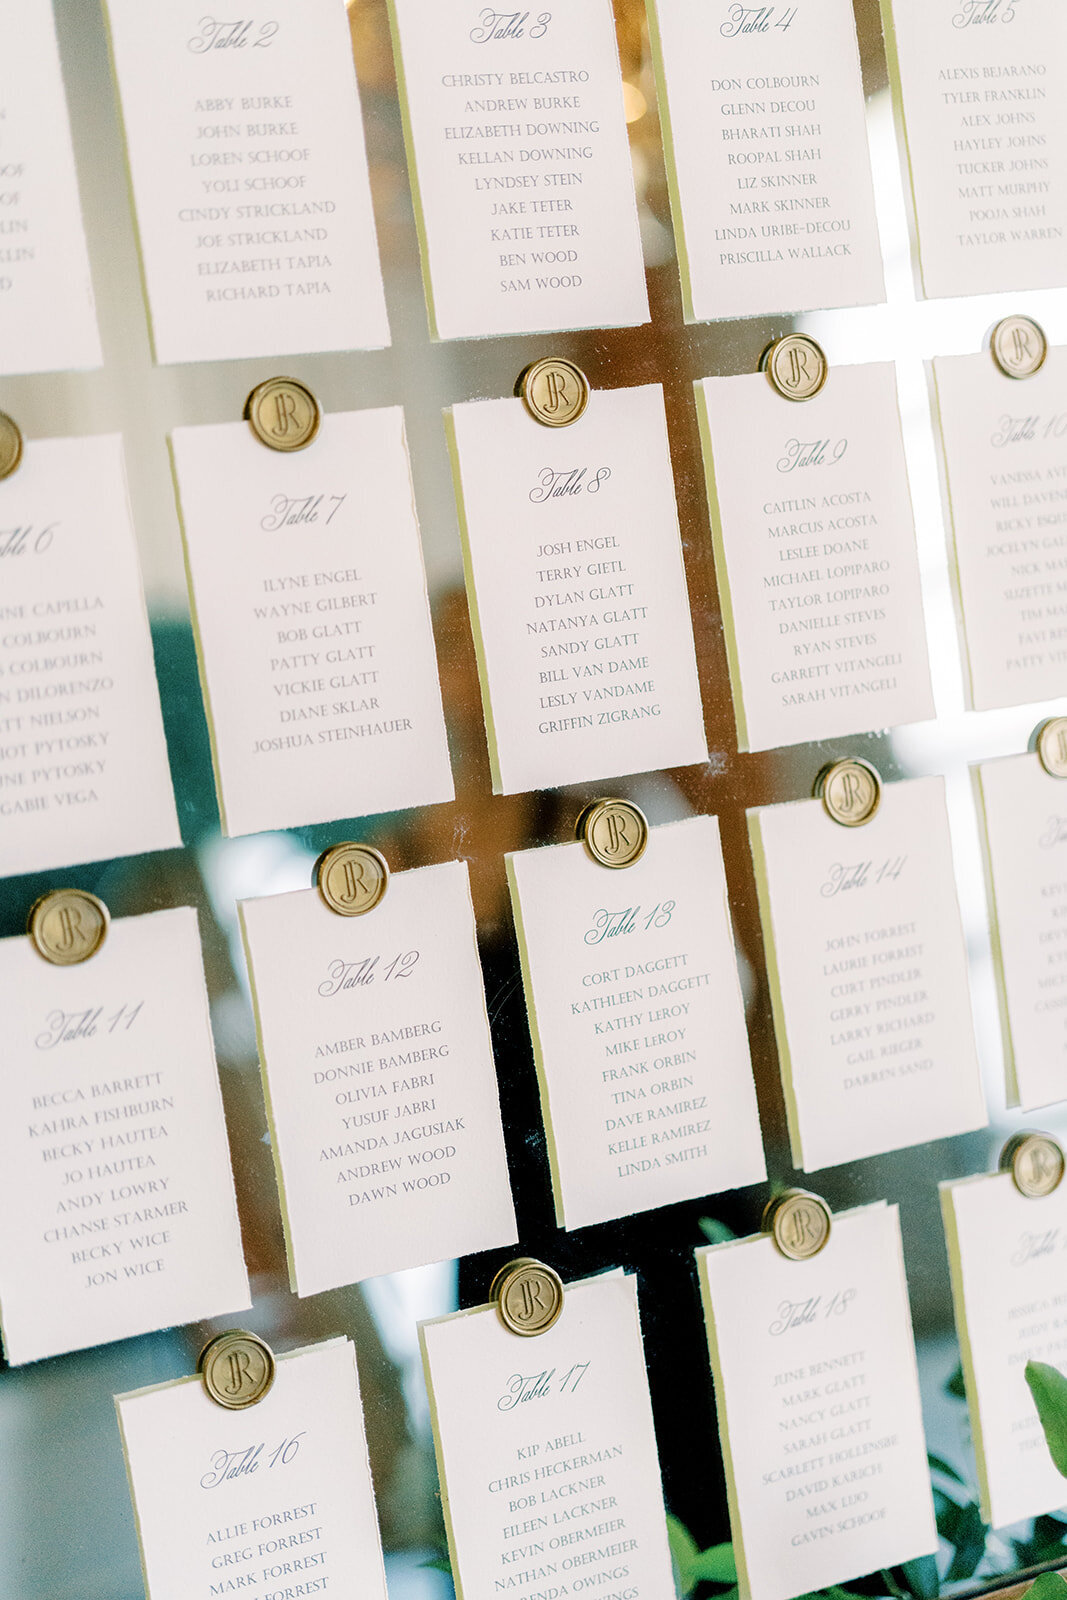 Table 2
ABBY BURKE
JOHN BURKE
LOREN SCHOOF
YOLI SCHOOF
CINDY STRICKLAND
JOE STRICKLAND
ELIZABETH TAPIA
RICHARD TAPIA
Table 3
CHRISTY BELCASTRO
ANDREW BURKE
ELIZABETH DOWNING
KELLAN DOWNING
LYNDSEY STEIN
JAKE TETER
KATIE TETER
BEN WOOD
SAM WOOD
Table 4
DON COLBOURN
GLENN DECOU
BHARATI SHAH
ROOPAL SHAH
LIZ SKINNER
MARK SKINNER
LINDA URIBE-DECOU
PRISCILLA WALLACK
Table 5
ALEXIS BEJARANO
TYLER FRANKLIN
ALEX JOHNS
HAYLEY JOHNS
TUCKER JOHNS
MATT MURPHY
POOJA SHAH
TAYLOR WARREN
6
CAPELLA
COLBOURN
COLBOURN
DILORENZO
NIELSON
PYTOSKY
PYTOSKY
GABIE VEGA
JR
Table 7
ILYNE ENGEL
WAYNE GILBERT
BOB GLATT
PATTY GLATT
VICKIE GLATT
DIANE SKLAR
JOSHUA STEINHAUER
JR
Table 8
JOSH ENGEL
TERRY GIETL
DYLAN GLATT
NATANYA GLATT
SANDY GLATT
BILL VAN DAME
LESLY VANDAME
GRIFFIN ZIGRANG
JR
Table 9
CAITLIN ACOSTA
MARCUS ACOSTA
LESLEE DOANE
MICHAEL LOPIPARO
TAYLOR LOPIPARO
DANIELLE STEVES
RYAN STEVES
GARRETT VITANGELI
SARAH VITANGELI
JR
Table 10
VANESSA
WILL
RICKY
JOCELYN
NICK
SUZETTE
TIM
FAVI
PATTY
JR
Table 11
BECCA BARRETT
KAHRA FISHBURN
BECKY HAUTEA
JO HAUTEA
ANDY LOWRY
CHANSE STARMER
BECKY WICE
JON WICE
JR
Table 12
AMBER BAMBERG
DONNIE BAMBERG
OLIVIA FABRI
YUSUF JABRI
AMANDA JAGUSIAK
ANDREW WOOD
DAWN WOOD
JR
Table 13
CORT DAGGETT
KATHLEEN DAGGETT
KATHY LEROY
MIKE LEROY
FRANK ORBIN
TINA ORBIN
DAVE RAMIREZ
KELLE RAMIREZ
LINDA SMITH
JR
Table 14
JOHN FORREST
LAURIE FORREST
CURT PINDLER
GERRY PINDLER
LARRY RICHARD
GAIL RIEGER
DARREN SAND
JR
Table 16
ALLIE FORREST
GREG FORREST
MARK FORREST
FORREST
JR
Table 17
KIP ABELL
CHRIS HECKERMAN
BOB LACKNER
EILEEN LACKNER
KEVIN OBERMEIER
NATHAN OBERMEIER
OWINGS
JR
Table 18
JUNE BENNETT
MARK GLATT
NANCY GLATT
SARAH GLATT
SCARLETT HOLLENSBE
DAVID KARICH
MAX LUO
GAVIN SCHOOF
JR